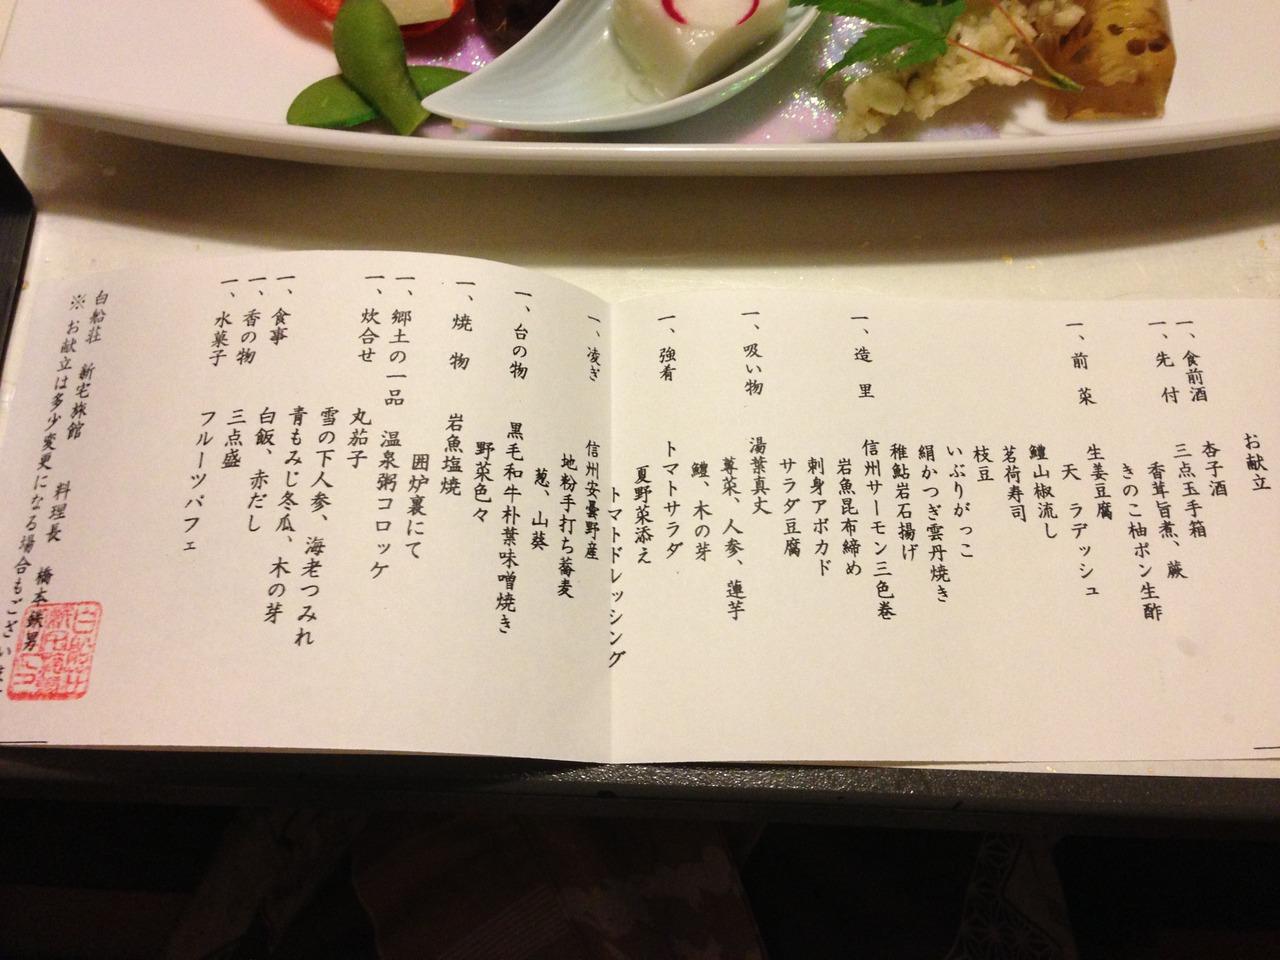 お献立
一、食前酒
杏子酒
一、先 付
三点玉手箱
香茸旨煮、蕨
きのこ柚ポン生酢
一、前 菜
生姜豆腐
天 ラデッシュ
鱧山椒流し
茗荷寿司
枝豆
いぶりがっこ
絹かつぎ雲丹焼き
稚鮎岩石揚げ
一、造 里
信州サーモン三色巻
岩魚昆布締め
刺身アボカド
サラダ豆腐
一、吸い物
湯葉真丈
蓴菜、人参、蓮芋
鱧、木の芽
一、強肴
トマトサラダ
夏野菜添え
トマトドレッシング
一、凌ぎ
信州安曇野産
地粉手打ち蕎麦
葱、山葵
一、台の物
黒毛和牛朴葉味噌焼き
野菜色々
一、焼 物
岩魚塩焼
囲炉裏にて
一、郷土の一品
温泉粥コロッケ
一、炊合せ
丸茄子
雪の下人参、海老つみれ
青もみじ冬瓜、木の芽
一、食事
白飯、赤だし
一、香の物
三点盛
一、水菓子
フルーツパフェ
白船荘 新宅旅館 料理長 橋本鉄男
※ お献立は多少変更になる場合もござい